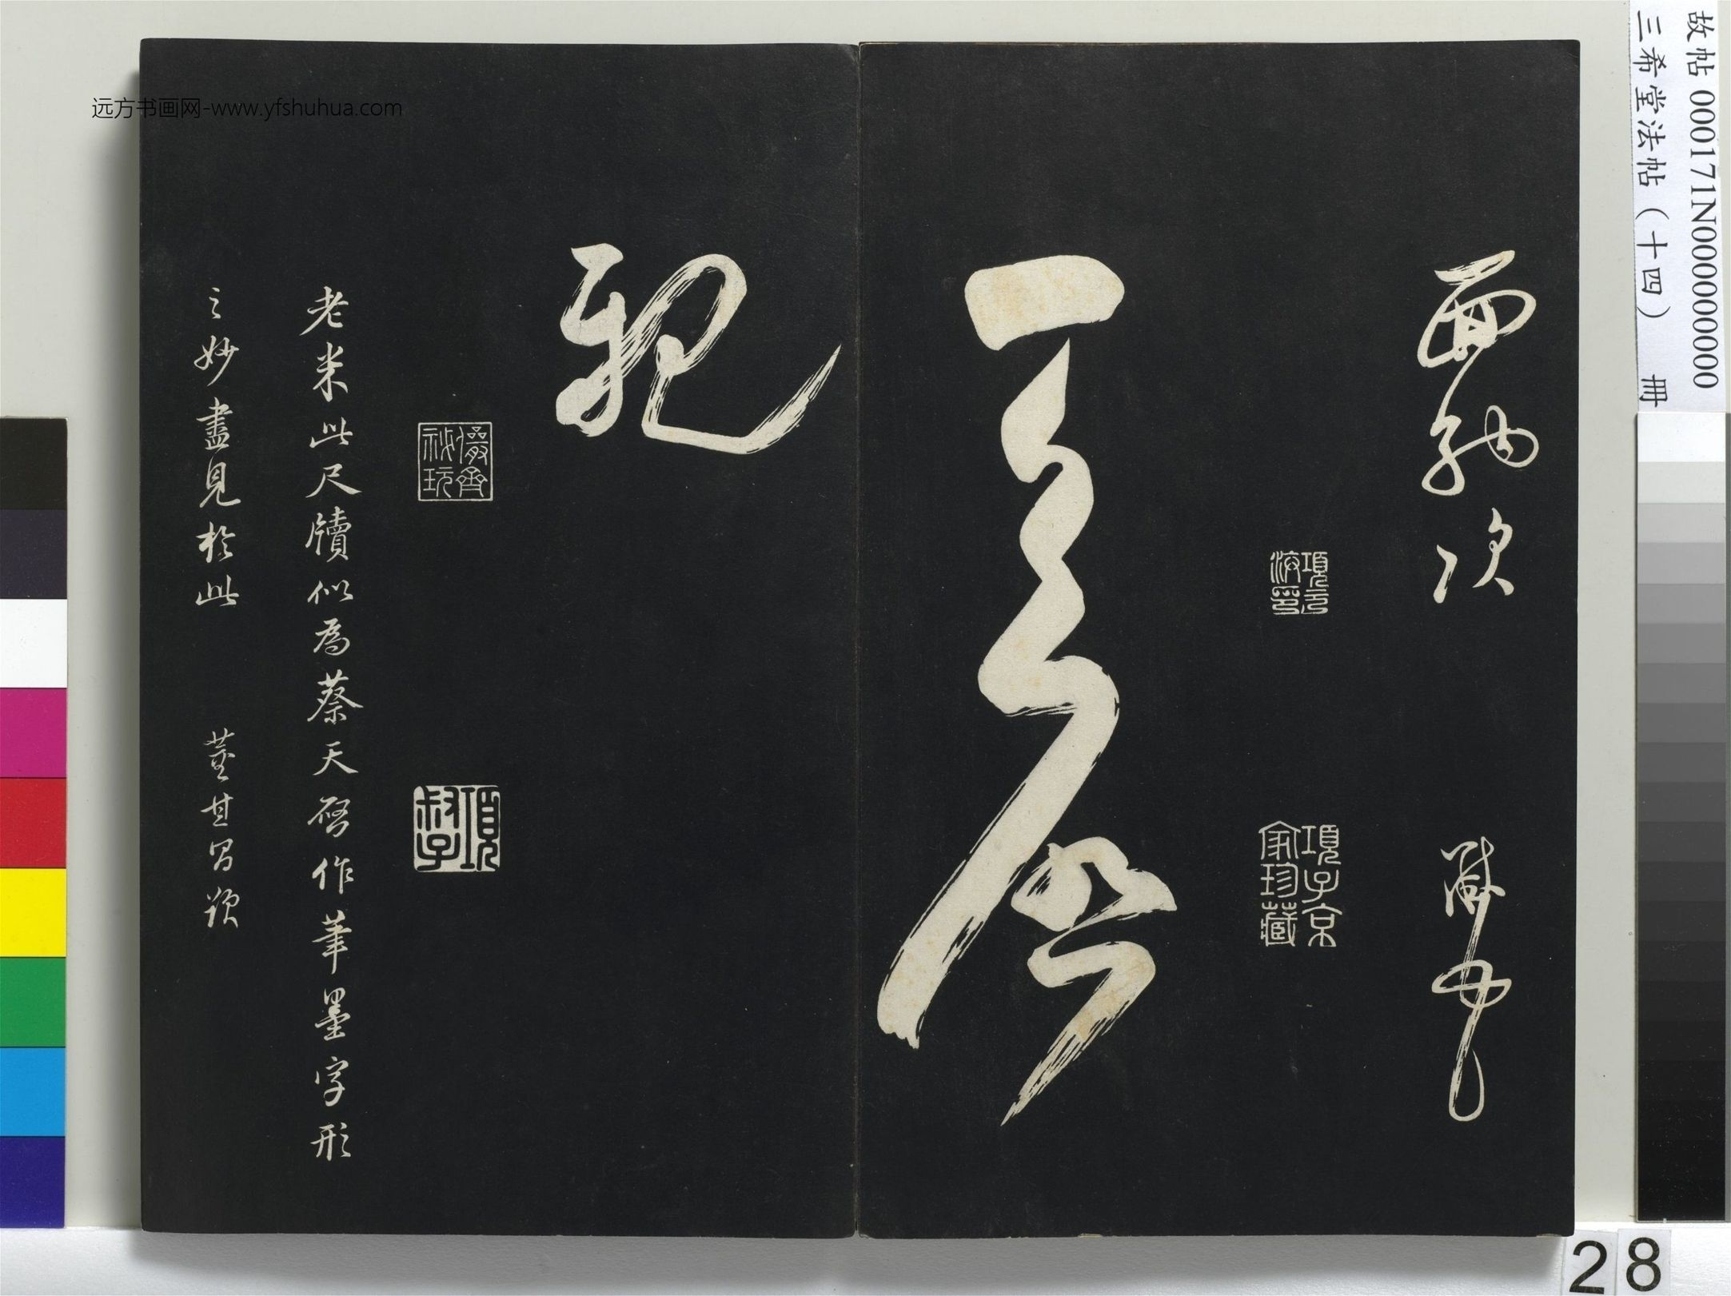 面納次 黻頓首
天啓
親
老米此尺牘似為蔡天啓作筆墨字形
之妙盡見於此 董其昌題
項元
汴印
項子京
家珍藏
儼齋
秘玩
項
叔子
故帖 000171N000000000
三希堂法帖（十四） 冊
28
远方书画网-www.yfshuhua.com